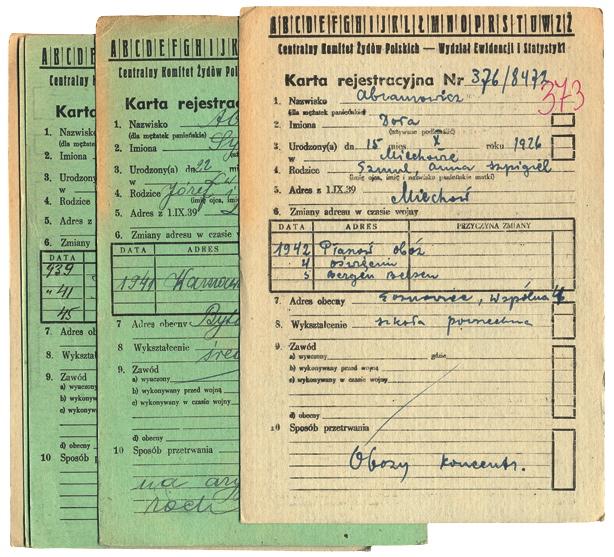 A B C D E
Centralny
Karta
1. Nazwisko
(dla mężatek
2. Imiona
3. Urodzony(a)
w
4. Rodzice
5. Adres z
6. Zmiany
DATA
939
" 41
45
7. Adres
8. Wykształ
9. Zawód
a) wyuczony
b) wykony
c) wykony
d) obecny
10 Sposób p
A B C D E F G H I J K
Centralny Komitet Żydów Pol
Karta rejestrac
1. Nazwisko
(dla mężatek panieńskie)
2. Imiona
3. Urodzony(a) dn. 22 mi
w
4. Rodzice Józef i
(imię ojca, im
5. Adres z 1.IX.39
6. Zmiany adresu w czasie
DATA ADRES
1941 Warszaw
7 Adres obecny Byto
8 Wykształcenie śre
9. Zawód
a) wyuczony
b) wykonywany przed wojną
c) wykonywany w czasie wojny
d) obecny
10 Sposób przetrwania
na ary
A B C D E F G H I J K L Ł M N O P R S T U W Z Ż
Centralny Komitet Żydów Polskich — Wydział Ewidencji i Statystyki
Karta rejestracyjna Nr 376/8472
373
1. Nazwisko Abramowicz
(dla mężatek panieńskie)
2. Imiona Dora
3. Urodzony(a) dn 15 mies X roku 1926
w Miechowie
4. Rodzice Szmul Anna Szpigiel
(imię ojca, imię i nazwisko panieńskie matki)
5. Adres z 1.IX.39 Miechów
6. Zmiany adresu w czasie wojny
DATA ADRES PRZYCZYNA ZMIANY
1942 Płaszów obóz
4 Oświęcim
5 Bergen Belsen
7. Adres obecny Sosnowiec, Wspólna 4
8. Wykształcenie szkoła powszechna
9. Zawód
a) wyuczony gdzie
b) wykonywany przed wojną
c) wykonywany w czasie wojny
d) obecny
10 Sposób przetrwania
Obozy koncentr.